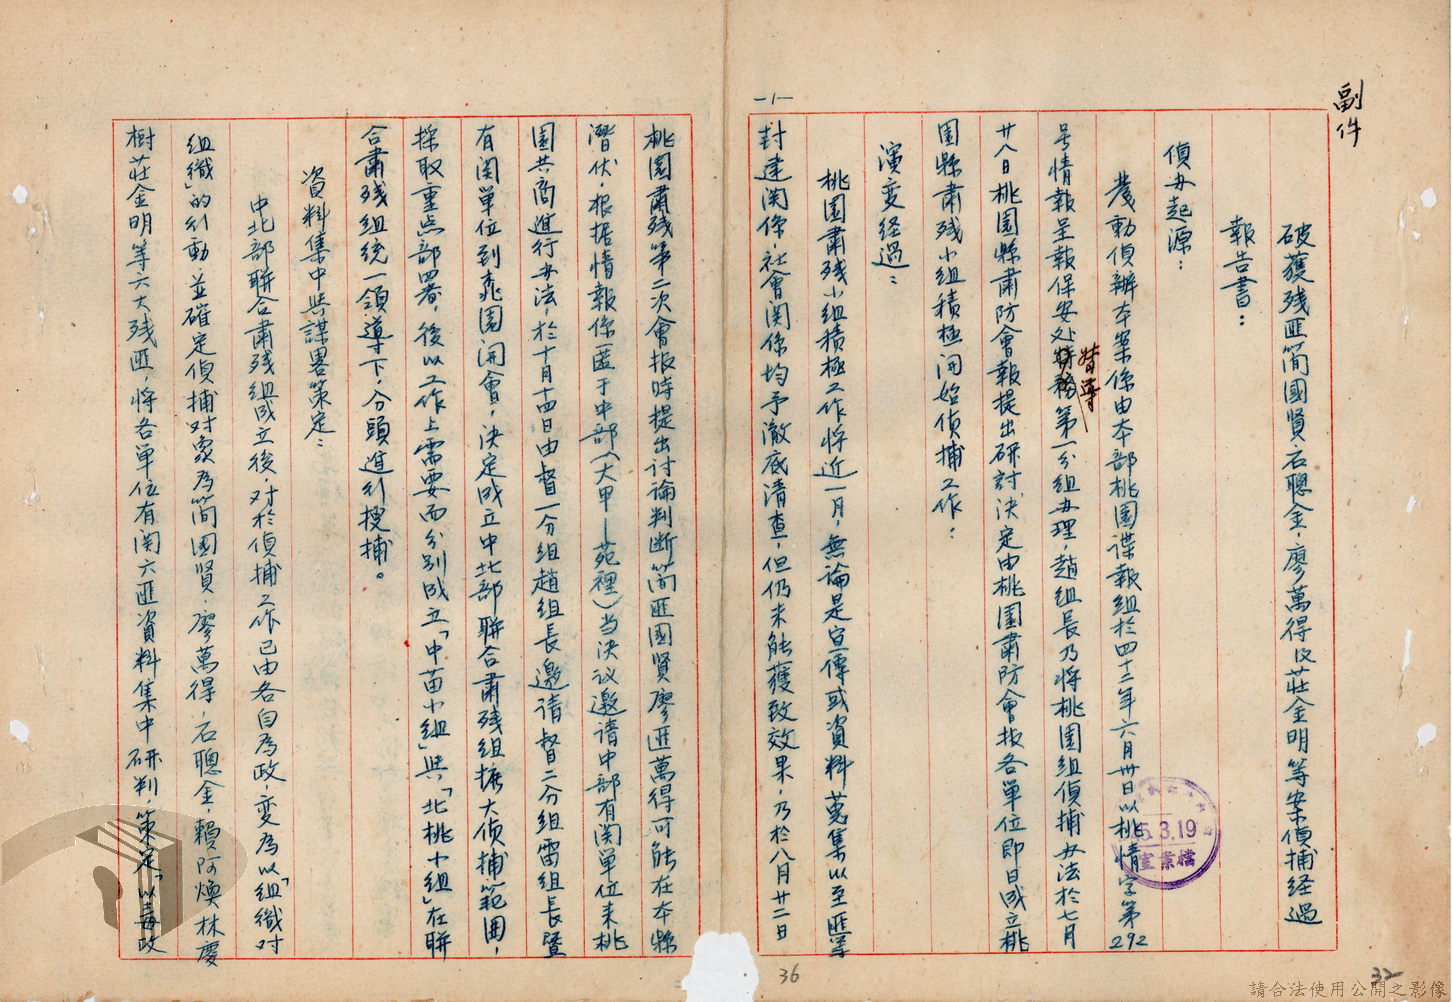 副件
破獲残匪簡國賢、石聰金、廖萬得及莊金明等案偵捕経過
報告書：
偵办起源：
發動偵辦本案係由本部桃園諜報組於四十二年六月卅日以桃情字第292
号情報呈報保安处督導第一分組办理，趙組長乃将桃園組偵捕办法於七月
廿八日桃園縣肅防會報提出研討決定由桃園肅防會报各單位即日成立桃
園縣肅残小組積極开始偵捕工作：
演変経過：
桃園肅残小組積極工作将近一月，無論是宣傳或資料蒐集以至匪等
封建関係，社會関係均予澈底清查，但仍未能獲致效果，乃於八月廿二日
桃園肅残第二次會报時提出讨論判断简匪國賢廖匪萬得可能在本縣
潛伏，根据情報係匿于中部（大甲—苑裡）当决议邀请中部有関單位来桃
園共商進行办法，於十月十四日由督一分組趙組長邀请督二分組雷組長暨
有関单位到桃園開會，决定成立中北部聯合肅残組擴大偵捕範囲，
採取重点部署，後以工作上需要而分别成立「中苗小組」與「北桃小組」在聯
合肅残組統一領導下，分頭進行搜捕。
資料集中與謀畧策定：
中北部聯合肅残組成立後，对於偵捕工作已由各自為政，変為以「組織对
組織」的行動並確定偵捕对象為简國賢，廖萬得，石聰金，賴阿煥林慶
樹莊金明等六大残匪，将各单位有関六匪資料集中研判，策定「以毒攻
-1-
36
32
5.3.19
檔案室
請合法使用公開之影像